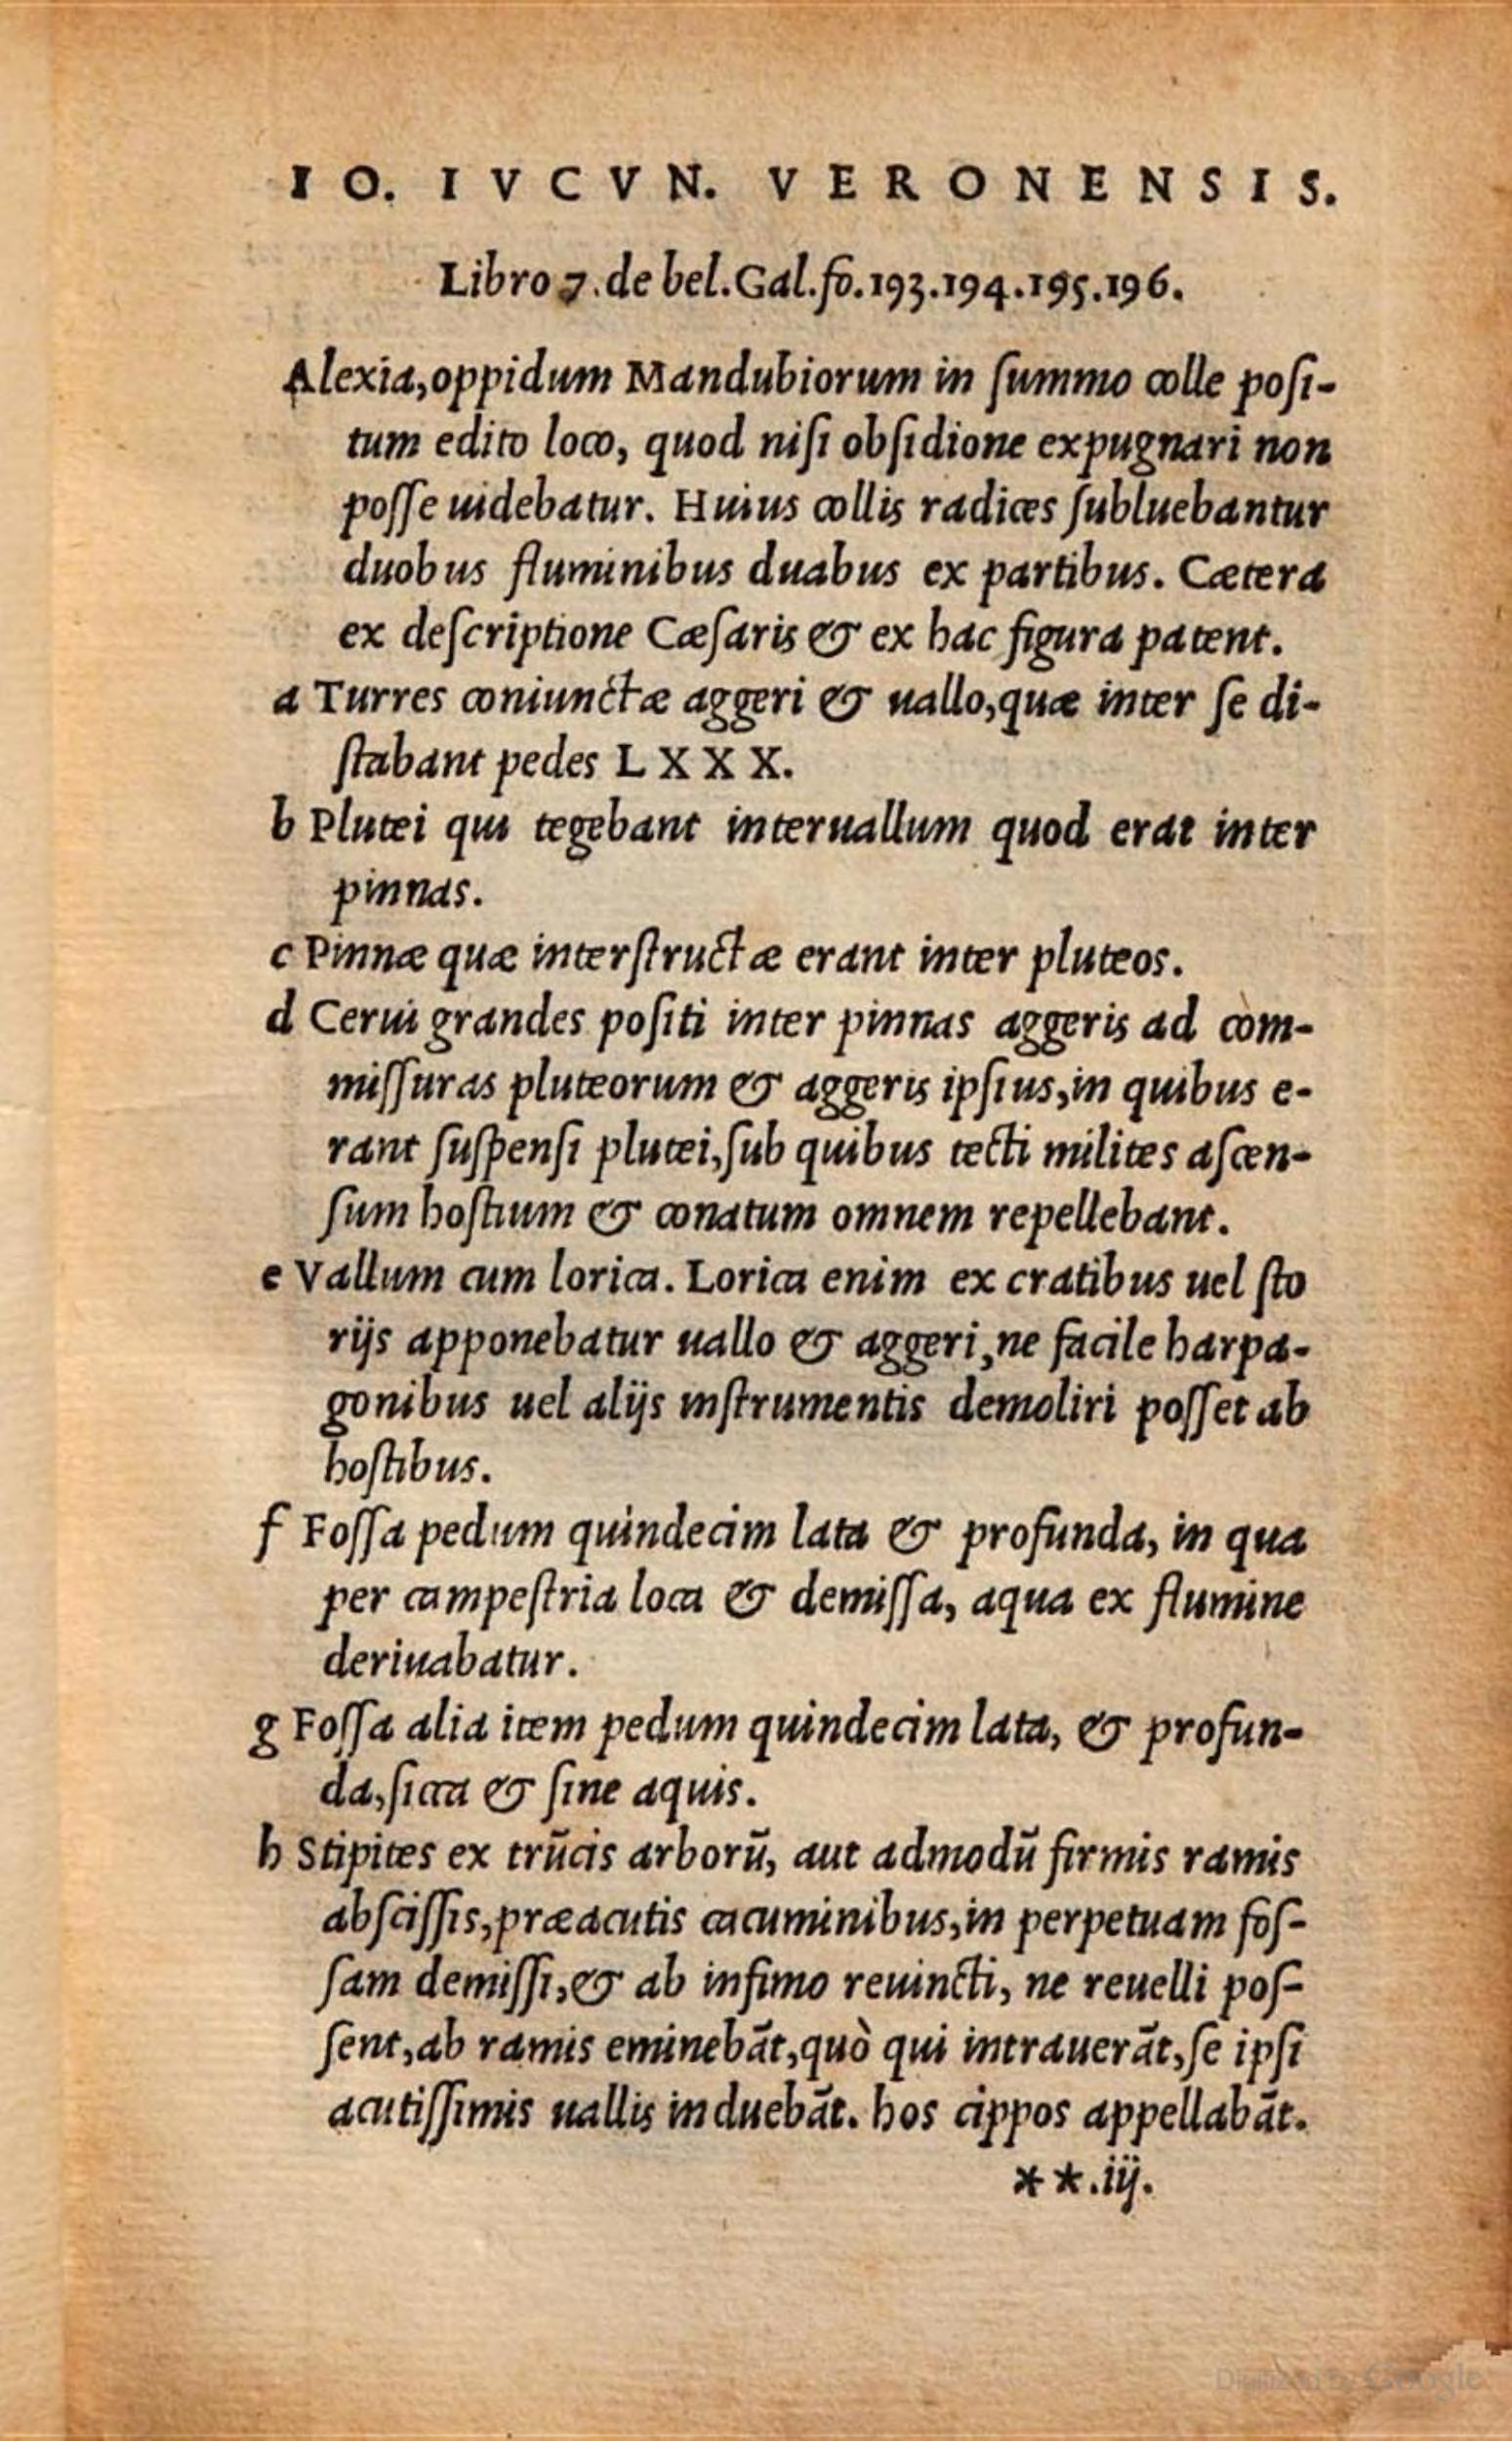 IO. IVCVN. VERONENSIS.
Libro 7. de bel. Gal. fo. 193.194.195.196.
Alexia, oppidum Mandubiorum in ſummo colle poſi-
tum edito loco, quod niſi obſidione expugnari non
poſſe uidebatur. Huius collis radices ſubluebantur
duobus fluminibus duabus ex partibus. Cætera
ex deſcriptione Cæſaris & ex hac figura patent.
a Turres coniunctæ aggeri & uallo, quæ inter ſe di-
ſtabant pedes LXXX.
b Plutei qui tegebant interuallum quod erat inter
pinnas.
c Pinnæ quæ interſtructæ erant inter pluteos.
d Cerui grandes poſiti inter pinnas aggeris ad com-
miſſuras pluteorum & aggeris ipſius, in quibus e-
rant ſuſpenſi plutei, ſub quibus tecti milites aſcen-
ſum hoſtium & conatum omnem repellebant.
e Vallum cum lorica. Lorica enim ex cratibus uel ſto
rijs apponebatur uallo & aggeri, ne facile harpa-
gonibus uel alijs inſtrumentis demoliri poſſet ab
hoſtibus.
f Foſſa pedum quindecim lata & profunda, in qua
per campeſtria loca & demiſſa, aqua ex flumine
deriuabatur.
g Foſſa alia item pedum quindecim lata, & profun-
da, ſicca & ſine aquis.
h Stipites ex trūcis arborū, aut admodū firmis ramis
abſciſſis, præacutis cacuminibus, in perpetuam foſ-
ſam demiſſi, & ab infimo reuincti, ne reuelli poſ-
ſent, ab ramis eminebāt, quò qui intrauerāt, ſe ipſi
acutiſſimis uallis induebāt. hos cippos appellabāt.
**.iij.
Digitized by Google